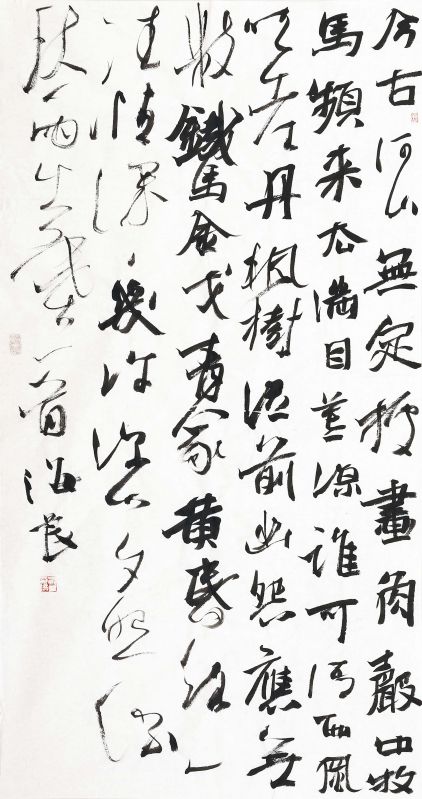 今古河山無定據畫角聲中牧
馬頻来去滿目荒涼誰可語西風
吹老丹楓樹從前幽怨應無
數鐵馬金戈青冢黄昏路一
往情深深幾許深山夕照深
秋雨一首